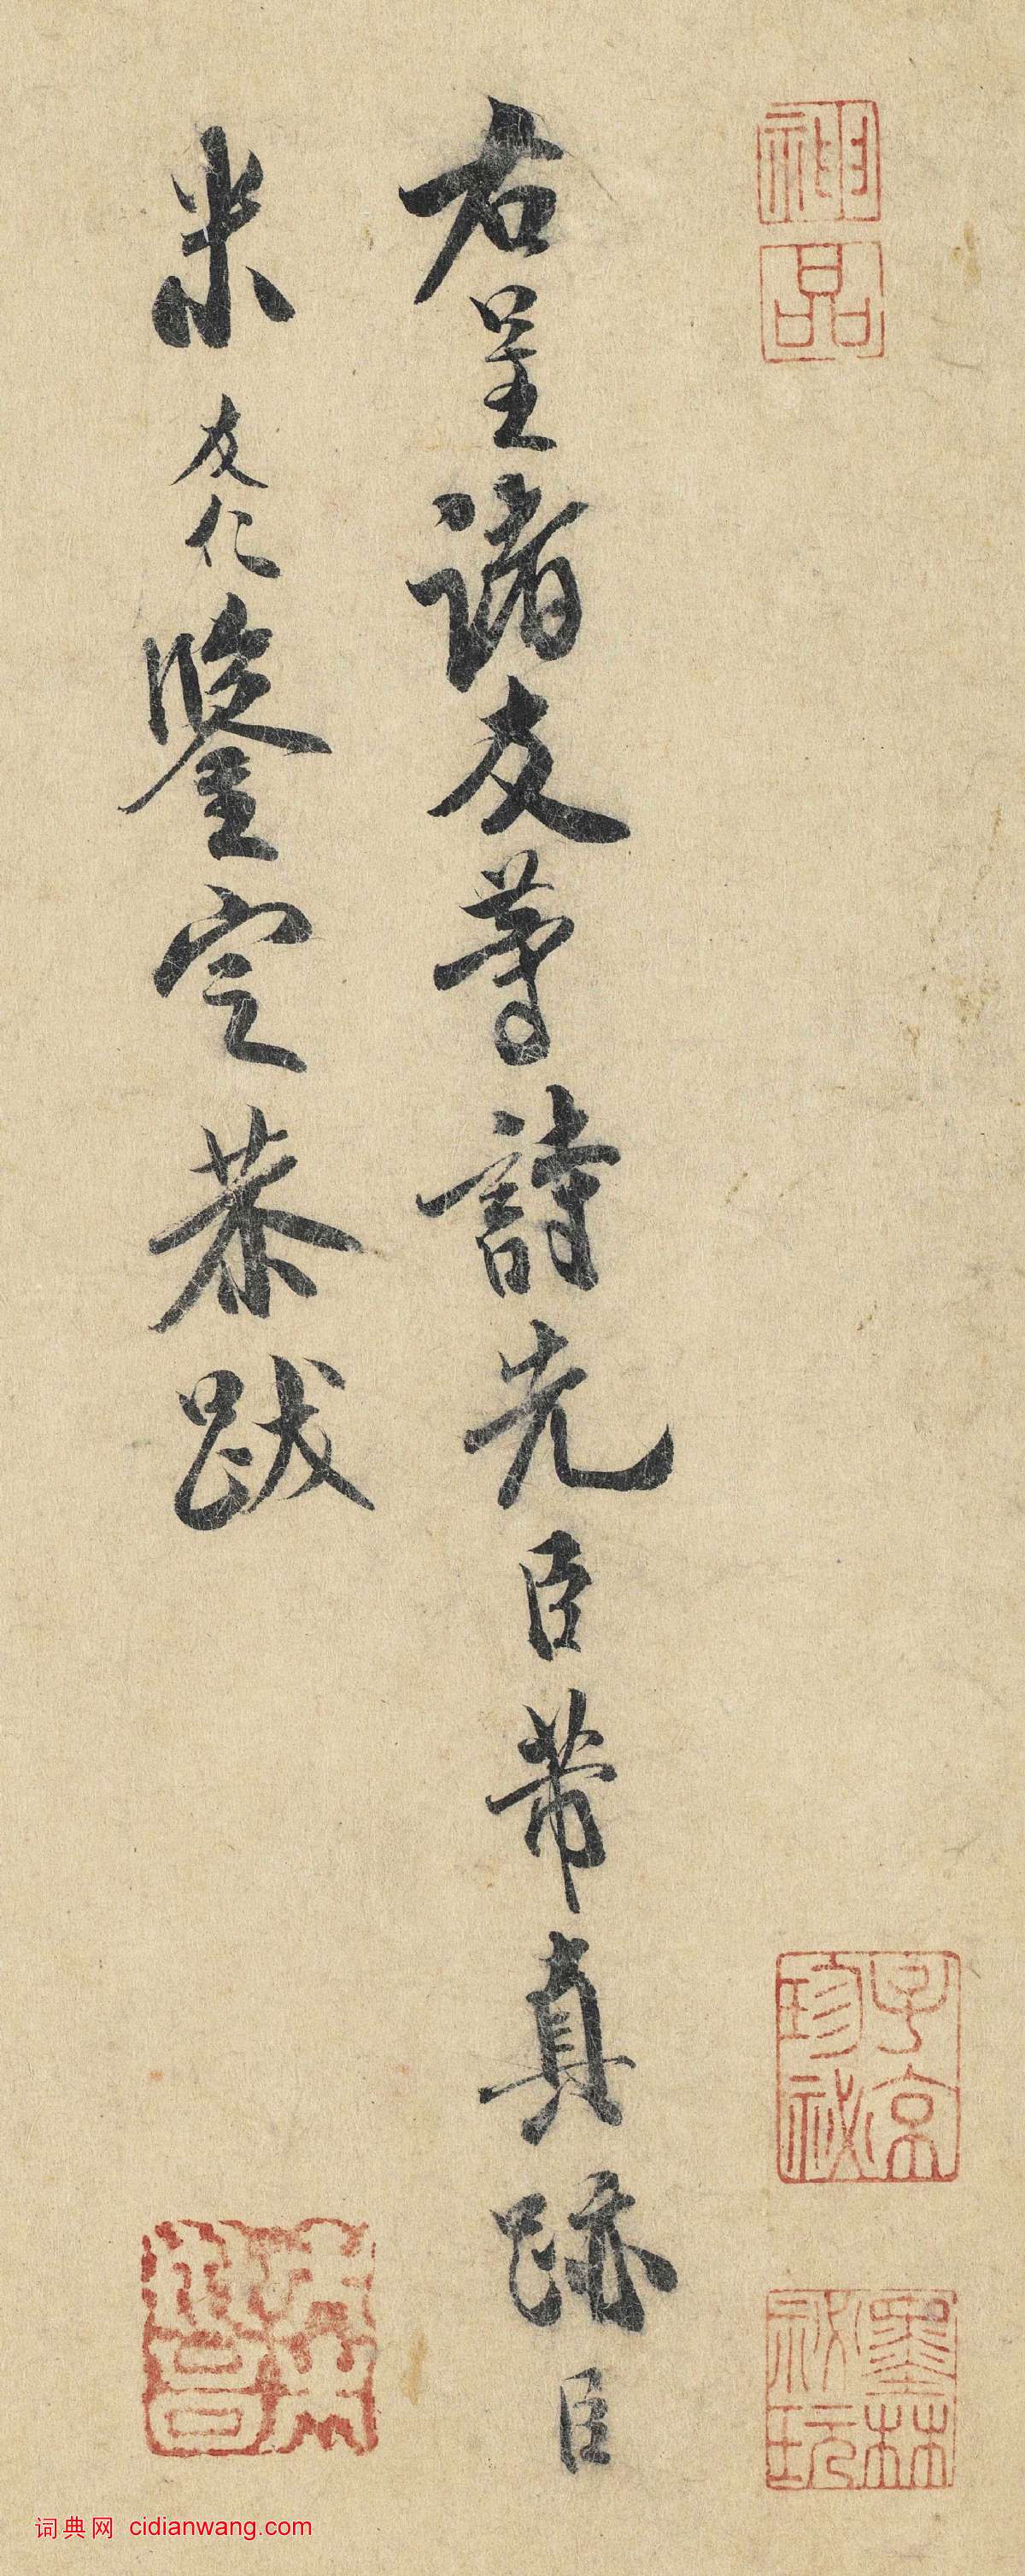 神品
子京珍秘
墨林秘玩
右呈諸友等詩先臣芾真跡臣
米友仁鑒定恭跋
词典网 cidianwang.com